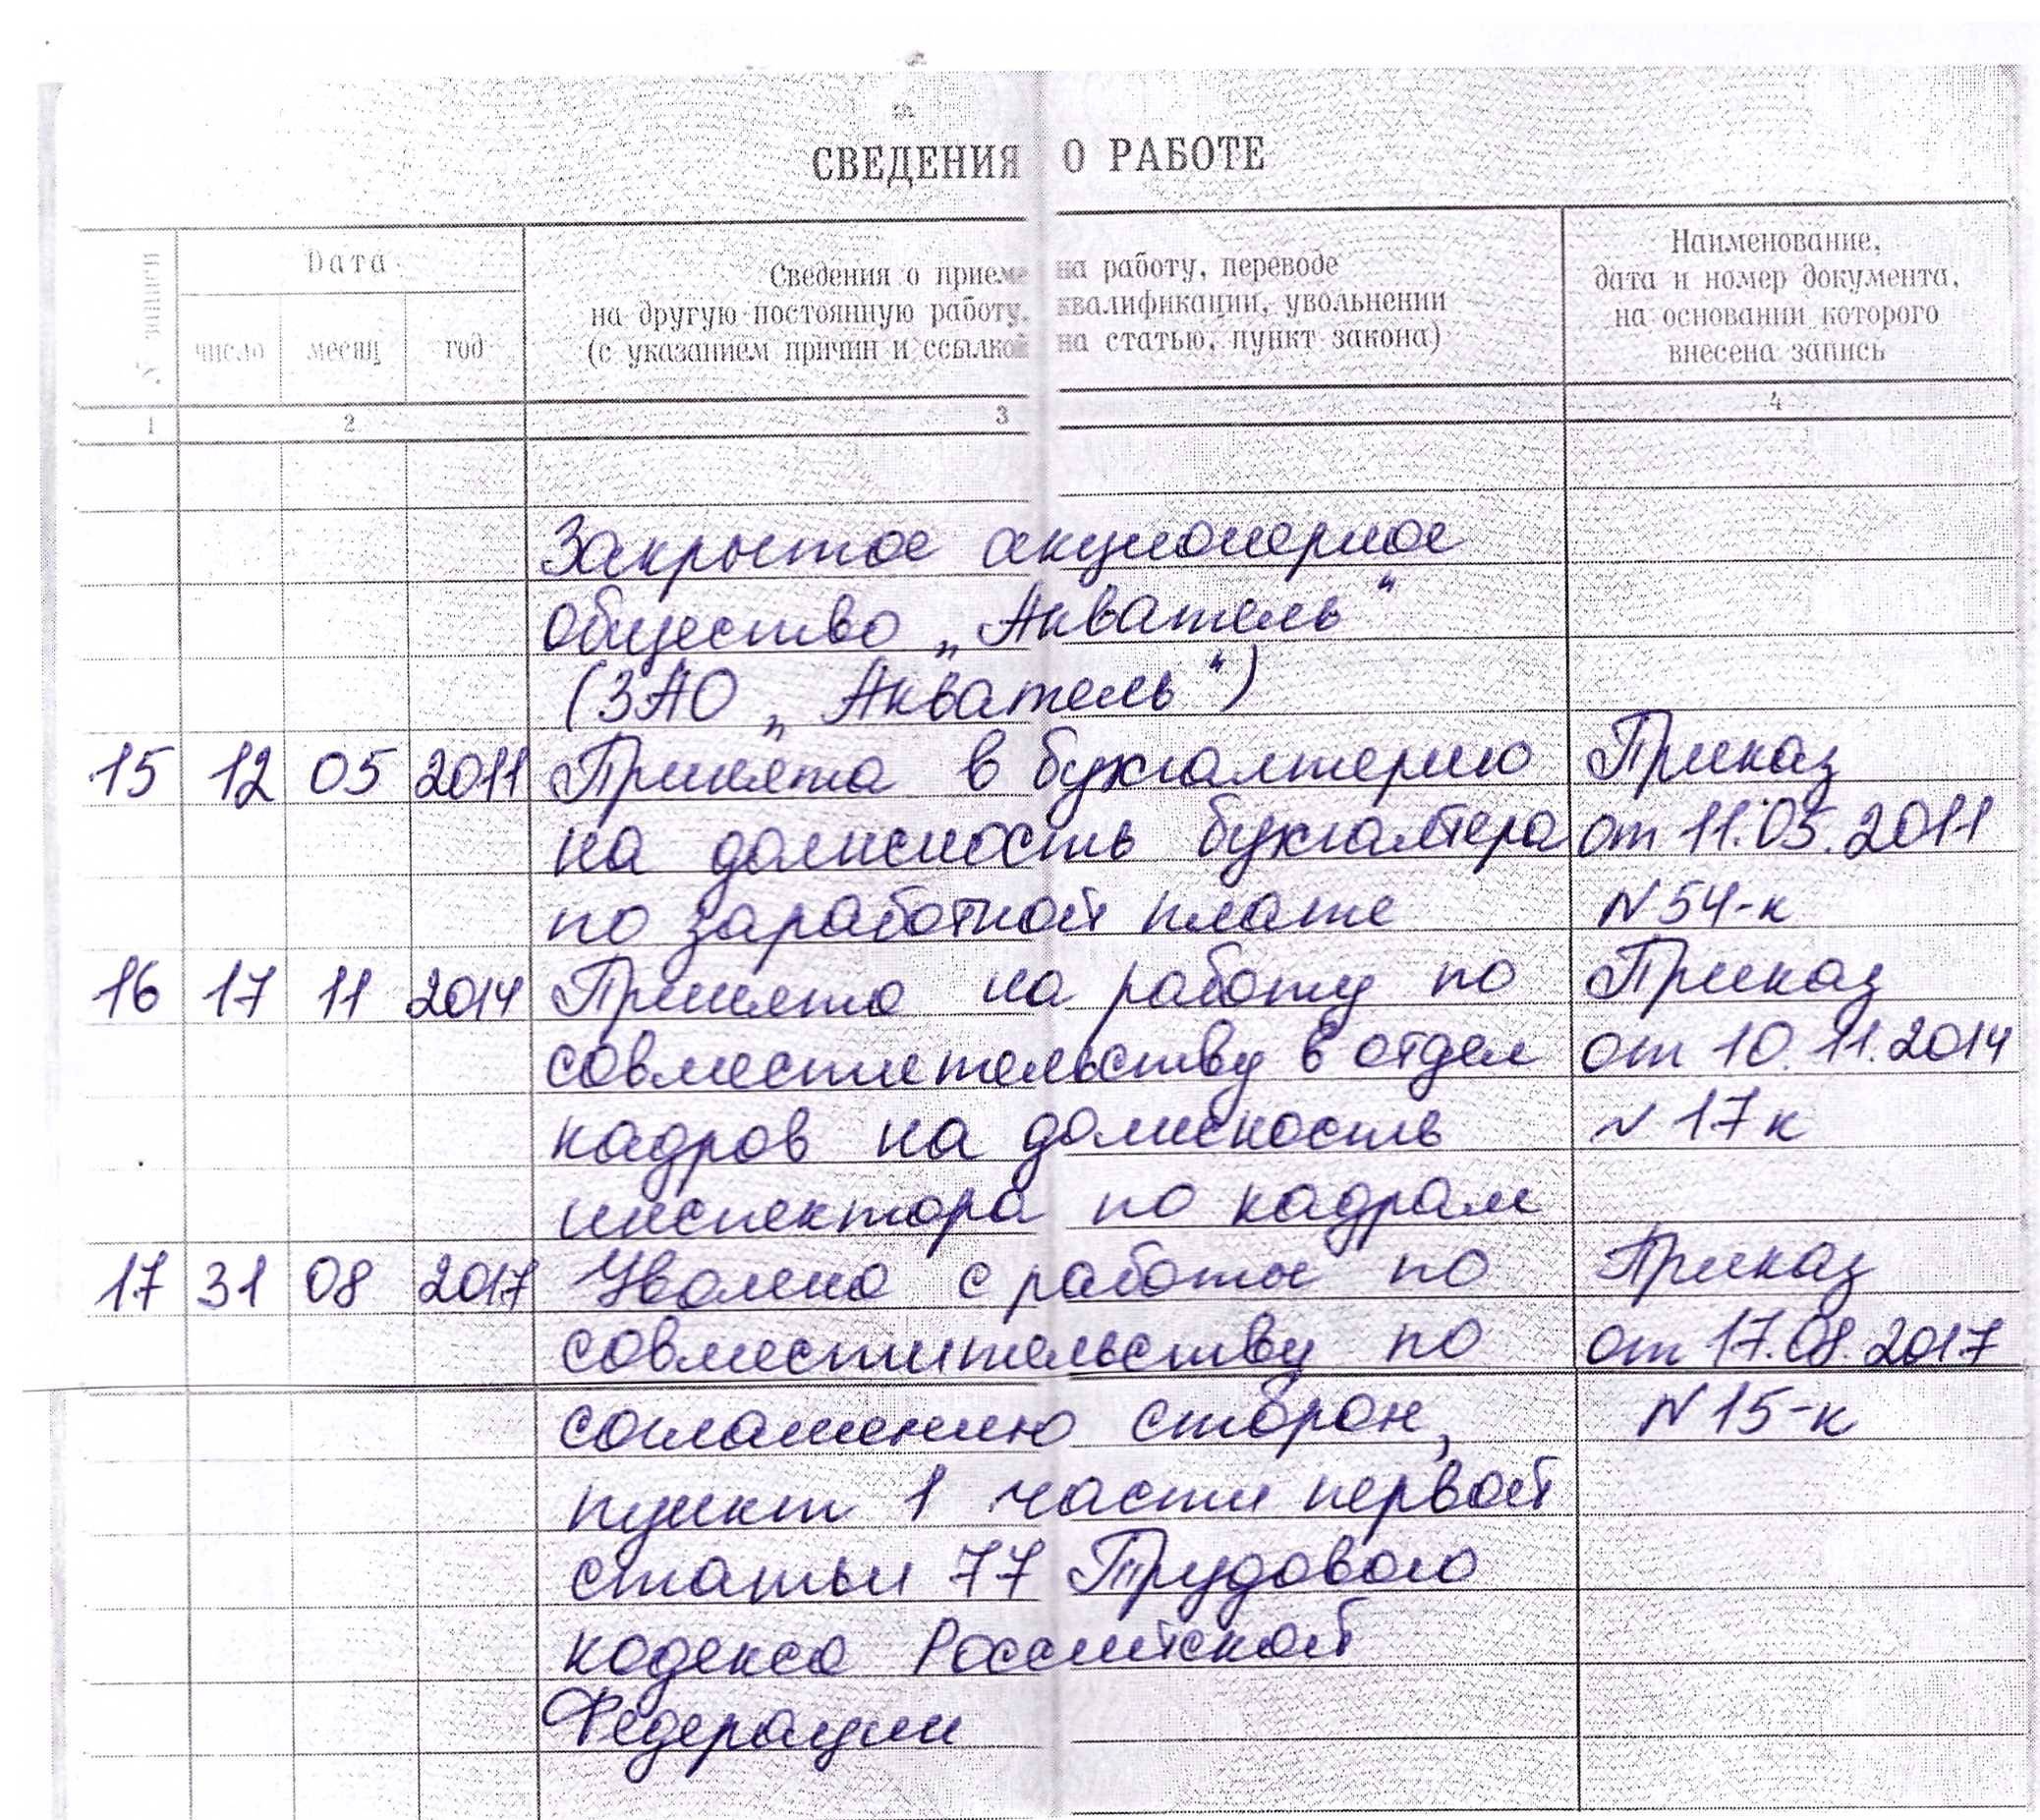 СВЕДЕНИЯ О РАБОТЕ
№ записи
Дата
число месяц год
Сведения о приеме на работу, переводе
на другую постоянную работу, квалификации, увольнении
(с указанием причин и ссылкой на статью, пункт закона)
Наименование,
дата и номер документа,
на основании которого
внесена запись
1 2 3 4
Закрытое акционерное
общество „Акватель“
(ЗАО „Акватель“)
15 12 05 2011 Принята в бухгалтерию Приказ
на должность бухгалтера от 11.05.2011
по заработной плате N 54-к
16 17 11 2014 Принята на работу по Приказ
совместительству в отдел от 10.11.2014
кадров на должность N 17к
инспектора по кадрам
17 31 08 2017 Уволена с работы по Приказ
совместительству по от 17.08.2017
соглашению сторон, N 15-к
пункт 1 части первой
статьи 77 Трудового
кодекса Российской
Федерации